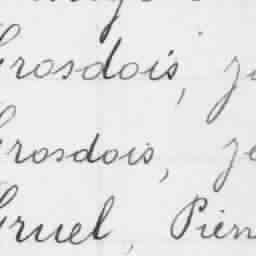 Grosdois, je
Grosdois, je
Gruel, Pier